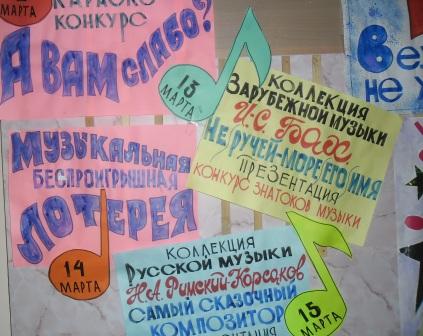 МАРТА
КАРАОКЕ
КОНКУРС
А ВАМ СЛАБО?
13
МАРТА
КОЛЛЕКЦИЯ
ЗАРУБЕЖНОЙ МУЗЫКИ
И.С. БАХ
НЕ РУЧЕЙ-МОРЕ ЕГО ИМЯ
ПРЕЗЕНТАЦИЯ
КОНКУРС ЗНАТОКОВ МУЗЫКИ
МУЗЫКАЛЬНАЯ
БЕСПРОИГРЫШНАЯ
ЛОТЕРЕЯ
14
МАРТА
КОЛЛЕКЦИЯ
РУССКОЙ МУЗЫКИ
Н.А. РИМСКИЙ-КОРСАКОВ
САМЫЙ СКАЗОЧНЫЙ
КОМПОЗИТОР
15
МАРТА